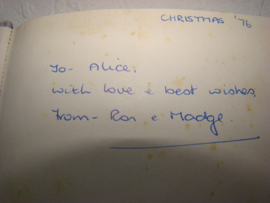 CHRISTMAS '76
To- Alice,
with love & best wishes,
from- Ron & Madge.